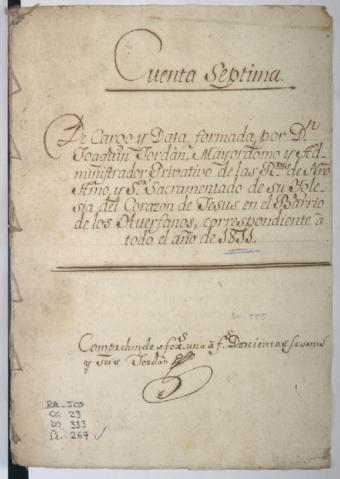 Cuenta Septima.
De Cargo y Data, formada por Dn
Joaquin Jordán, Mayordomo y Ad-
ministrador Privativo de las de Nro
Amo, y Sor Sacramentado de su Ygle-
sia del Corazon de Jesus en el Barrio
de los Huerfanos, correspondiente â
todo el año de 1811.
Comprehende foxs una â fs Docientas sesenta
y seis Jordan
RA_JCO
Ca 23
Do 333
Fs. 267